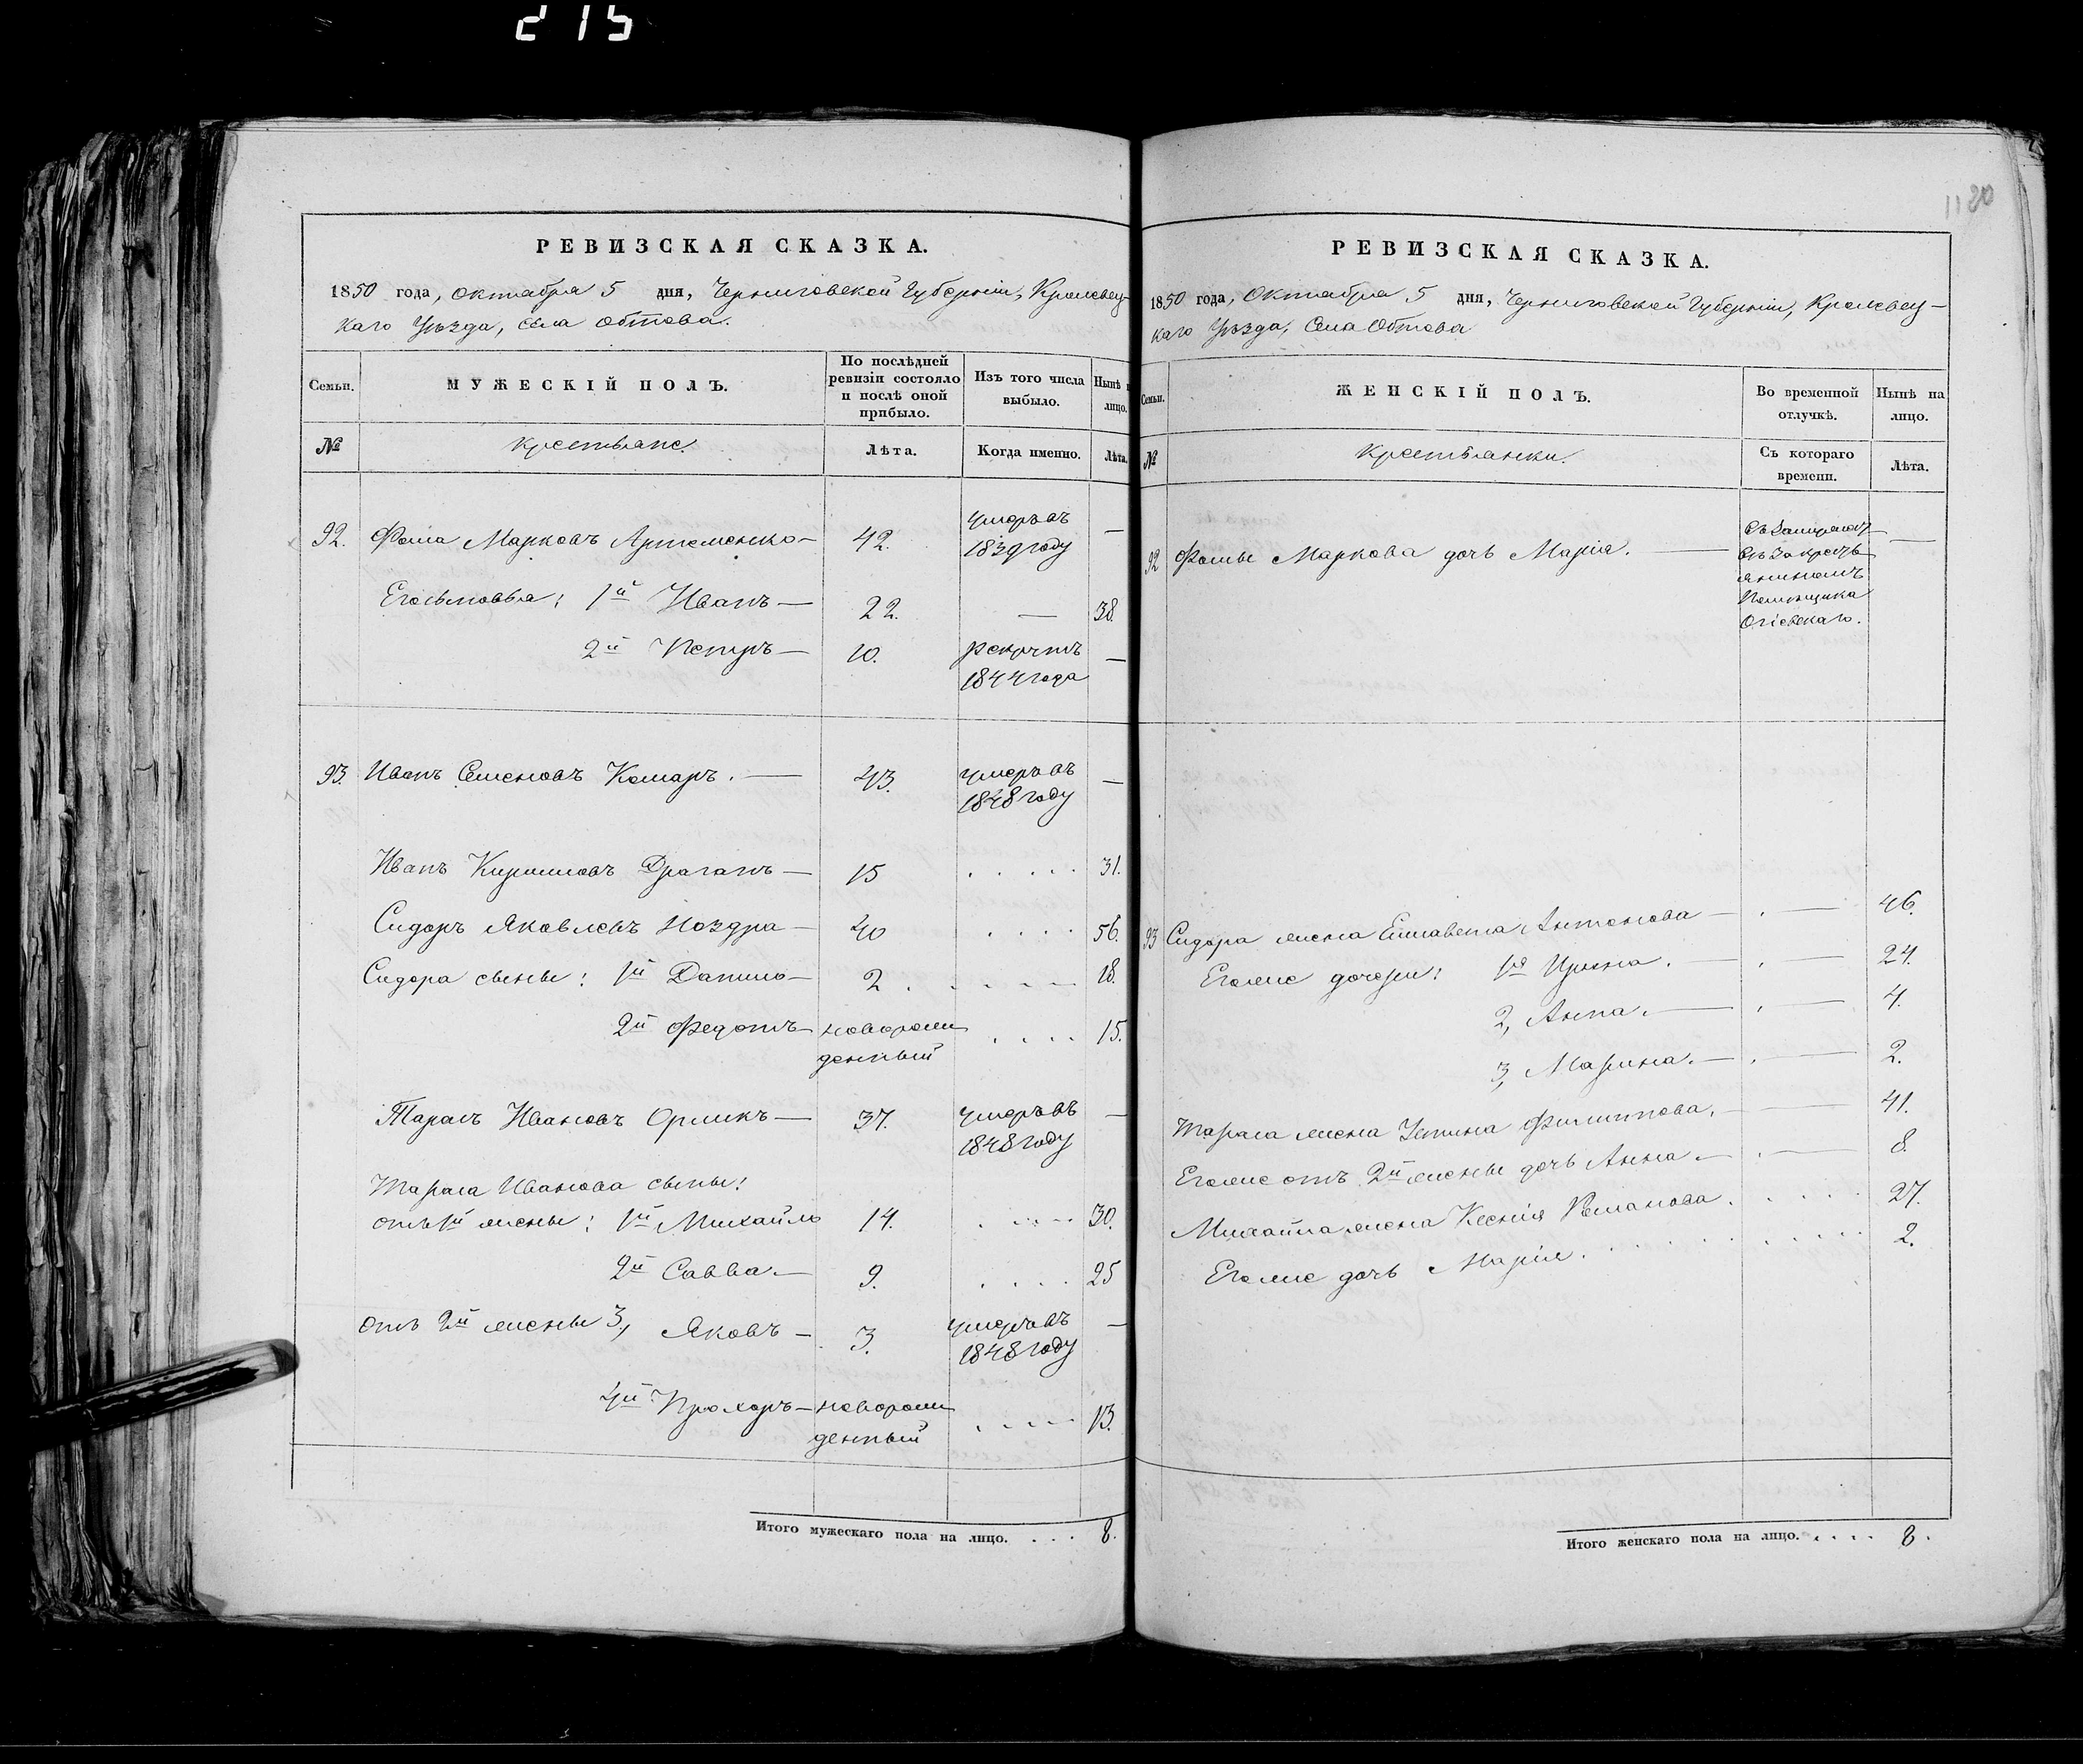 215
1180
РЕВИЗСКАЯ СКАЗКА.
1850 года, Октября 5 дня, Черниговской Губерніи, Кролевец-
каго Уѣзда, села Обтова.
Семьи. МУЖЕСКІЙ ПОЛЪ. По послѣдней ревизіи состояло и послѣ оной прибыло. Изъ того числа выбыло. Нынѣ на лицо.
№ Крестьяне. Лѣта. Когда именно. Лѣта.
92. Фома Марковъ Артеменко — 42. умеръ въ 1839 году —
1й Иванъ — 22. — 38.
2й Петръ — 10. рекрутъ 1844 года —
93. Иванъ Семеновъ Комаръ. — 43. умеръ въ 1848 году —
Иванъ Кириловъ Драганъ — 15 . . . . . 31.
Сидоръ Яковлевъ Ноздра — 40 . . . . 56.
Сидора сыны: 1й Данило — 2 . . . . . 18.
2й Федотъ — новорож
денный . . . . 15.
Тарасъ Ивановъ Орликъ — 37. умеръ въ 1848 году —
Тараса Иванова сыны:
отъ 1й жены: 1й Михайло 14. . . . . 30.
2й Савва — 9. . . . . 25
отъ 2й жены 3, Яковъ — 3. умеръ въ 1848 году —
4й Прохоръ — новорож
денный . . . . . 13.
Итого мужескаго пола на лицо. . . . 8.
РЕВИЗСКАЯ СКАЗКА.
1850 года, Октября 5 дня, Черниговской Губерніи, Кролевец-
каго Уѣзда, Села Обтова
Семьи. ЖЕНСКІЙ ПОЛЪ. Во временной отлучкѣ. Нынѣ на лицо.
№ Крестьянки. Съ котораго времени. Лѣта.
92 Фомы Маркова дочь Марія. —
въ Замужест
вѣ за кресть
яниномъ
Помѣщика
Огіевскаго.
93 Сидора жена Елисавета Антонова — . — 46.
Егоже дочери: 1я Ирина. — . — 24.
2, Анна. — . — 4.
3, Марина. — . — 2.
Тараса жена Устина Филиппова. — — 41.
Егоже отъ 2й жены дочь Анна — . — 8.
Михайла жена Ксенія Романова . . . . . 27.
Егоже дочь Марія. . . . . . . . . 2.
Итого женскаго пола на лицо. . . . . 8.